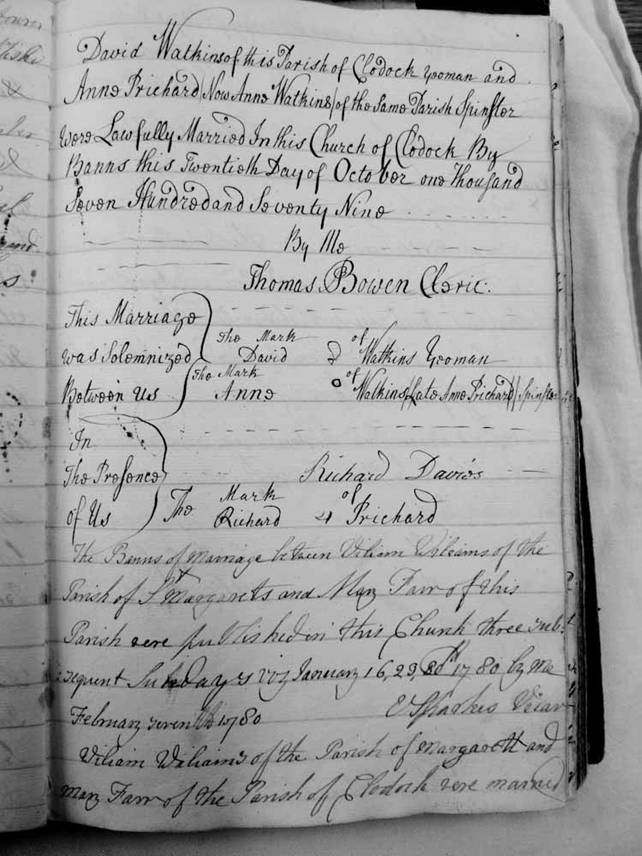 David Watkins of this Parish of Clodock Yeoman and
Anne Prichard/Now Anne Watkins/of the Same Parish Spinster
Were Lawfully Married In this Church of Clodock By
Banns this Twentieth Day of October one Thousand
Seven Hundred and Seventy Nine
By Me
Thomas Bowen Cleric.
This Marriage
was Solemnized
Between Us
The Mark of
David Watkins Yeoman
The Mark of
Anne Watkins/Late Anne Prichard/Spinster
In
The Presence
of Us
Richard Davies
The Mark of
Richard Prichard
The Banns of Marriage between Viliam Viliams of the
Parish of St Margarets and Mary Farr of this
Parish vere published in this Church three sub
sequent Sundays viz January 16, 23, 30th 1780 by me
February seventh 1780 Vicar
Viliam Viliams of the Parish of Margarett and
Mary Farr of the Parish of Clodock vere married